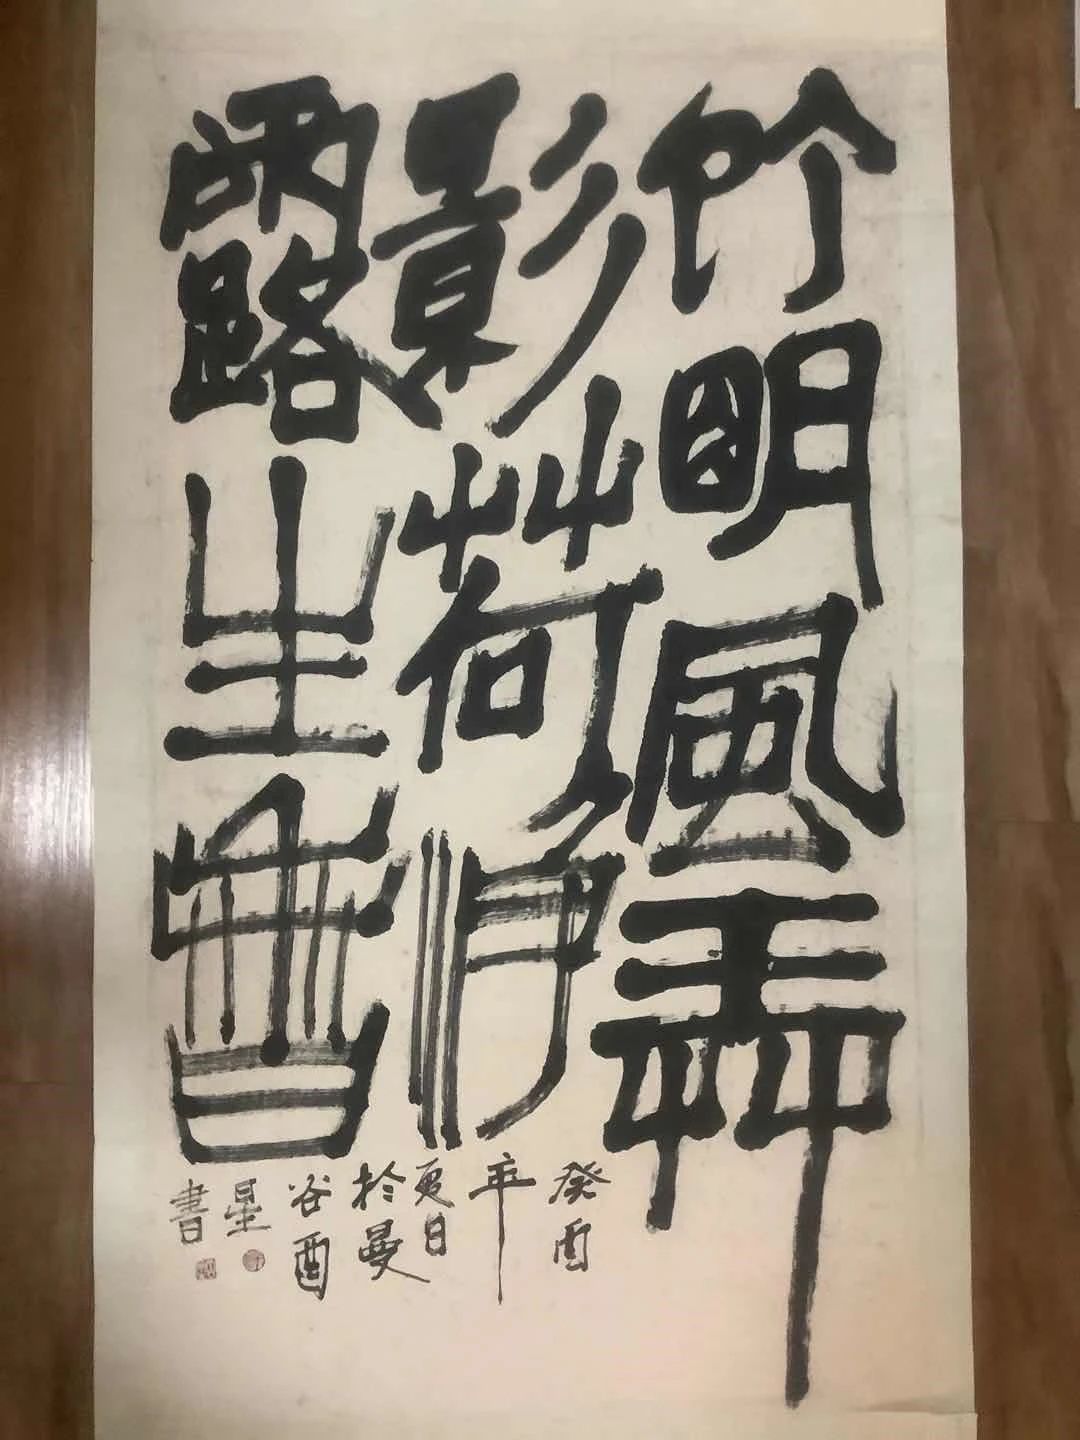 竹明風弄
影荷淨
露生香
癸酉
年
夏日
於曼
谷酉
星
書